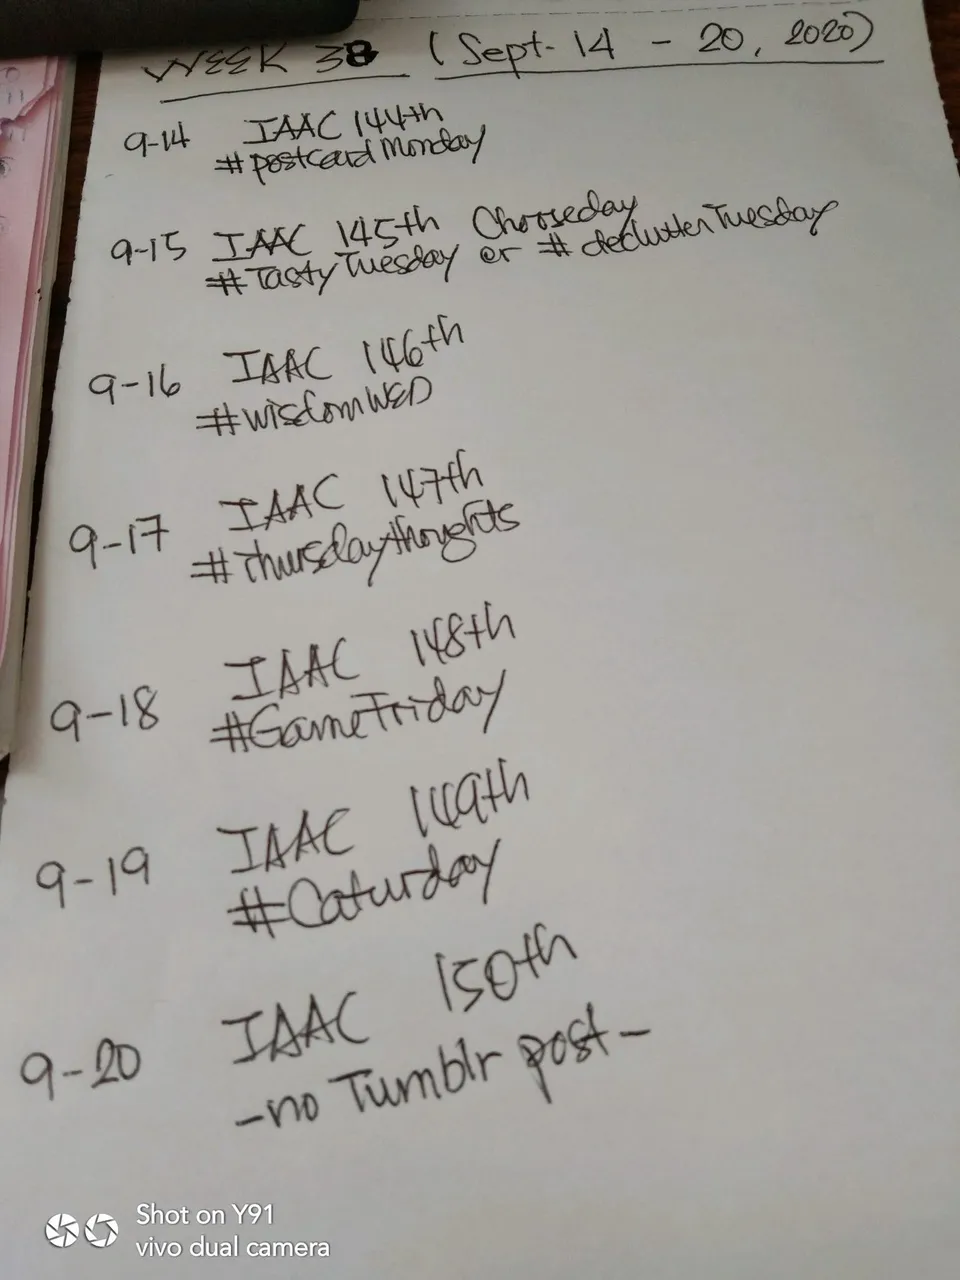 WEEK 38 (Sept. 14 - 20, 2020)
9-14 IAAC 144th
#postcardMonday
9-15 IAAC 145th Chooseday
#TastyTuesday or #declutterTuesday
9-16 IAAC 146th
#wisdomWED
9-17 IAAC 147th
#Thursdaythoughts
9-18 IAAC 148th
#GameFriday
9-19 IAAC 149th
#Caturday
9-20 IAAC 150th
-no Tumblr post-
Shot on Y91
vivo dual camera